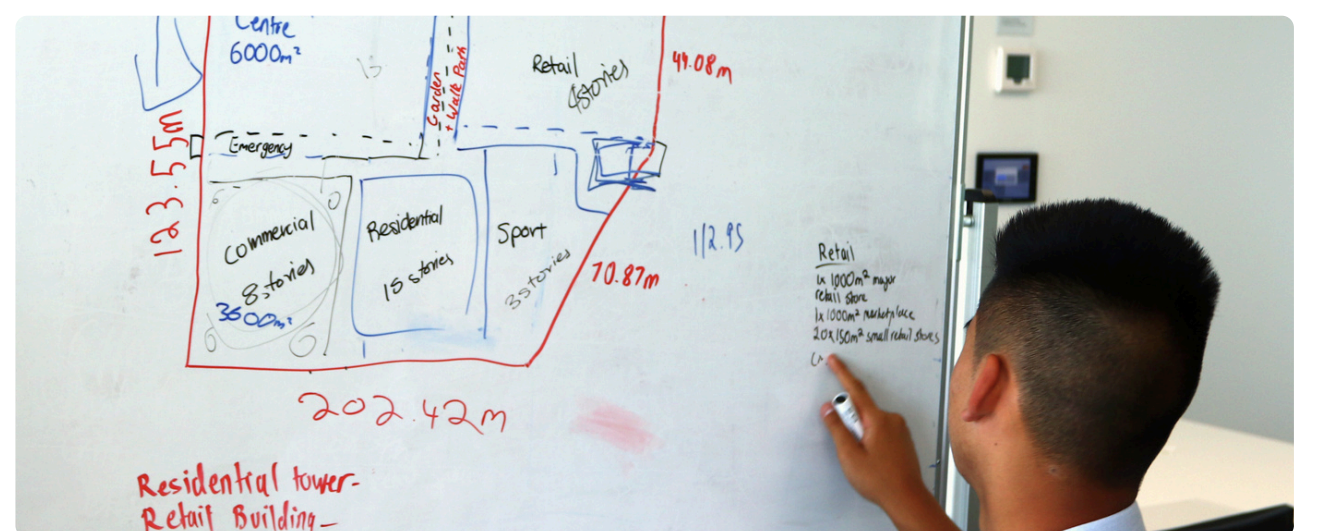 Centre
6000m²
Garden
+ Walk Path
Retail
4stories
44.08m
123.55m
Emergency
Commercial
8 stories
3600m²
Residential
15 stories
Sport
3 stories
70.87m
112.95
202.42m
Retail
1x 1000m² major
retail store
1x 1000m² marketplace
20x150m² small retail stores
Residential tower-
Retail Building-